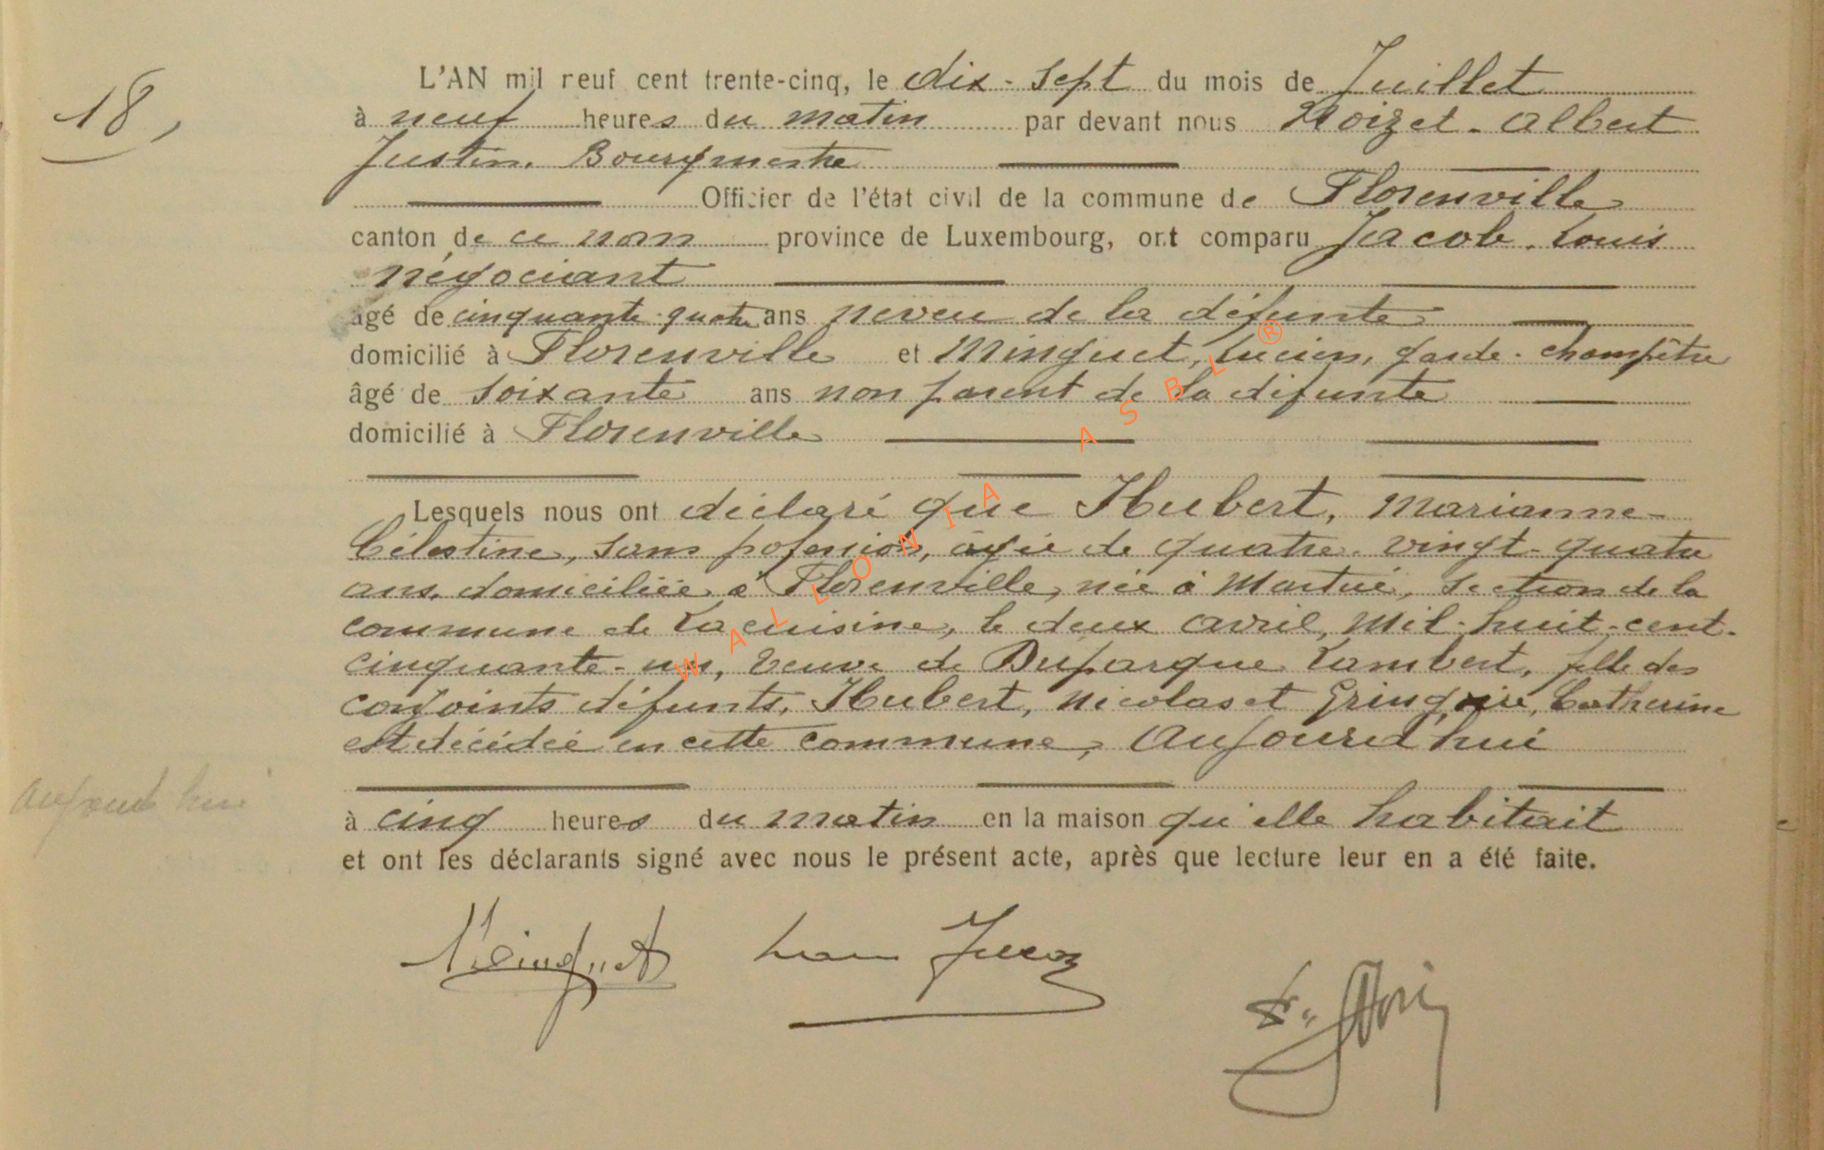 18,
L'AN mil neuf cent trente-cinq, le dix-sept du mois de Juillet
à neuf heures du matin par devant nous Noizet. Albert
Justin. Bourgmestre
Officier de l'état civil de la commune de Florenville
canton de ce nom province de Luxembourg, ont comparu Jacob. Louis
négociant
âgé de cinquante-quatre ans neveu de la défunte
domicilié à Florenville et Minguet, Lucien, garde-champêtre
âgé de soixante ans non parent de la défunte
domicilié à Florenville
Lesquels nous ont déclaré que Hubert, Marianne-
Célestine, sans profession, âgée de quatre-vingt-quatre
ans, domiciliée à Florenville, née à Martué, section de la
commune de Lacuisine, le deux avril, mil-huit-cent-
cinquante-un, veuve de Duparque Lambert, fille des
conjoints défunts, Hubert, Nicolas et Catherine
est décédée en cette commune, aujourd'hui
aujourd'hui
à cinq heures du matin en la maison qu'elle habitait
et ont les déclarants signé avec nous le présent acte, après que lecture leur en a été faite.
Minguet Jacob
WALLONIA ASBL ®